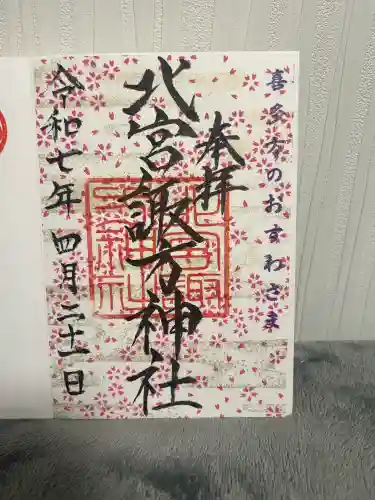 喜多方のおすわさま
奉拝
北宮諏方神社
令和七年四月二十一日